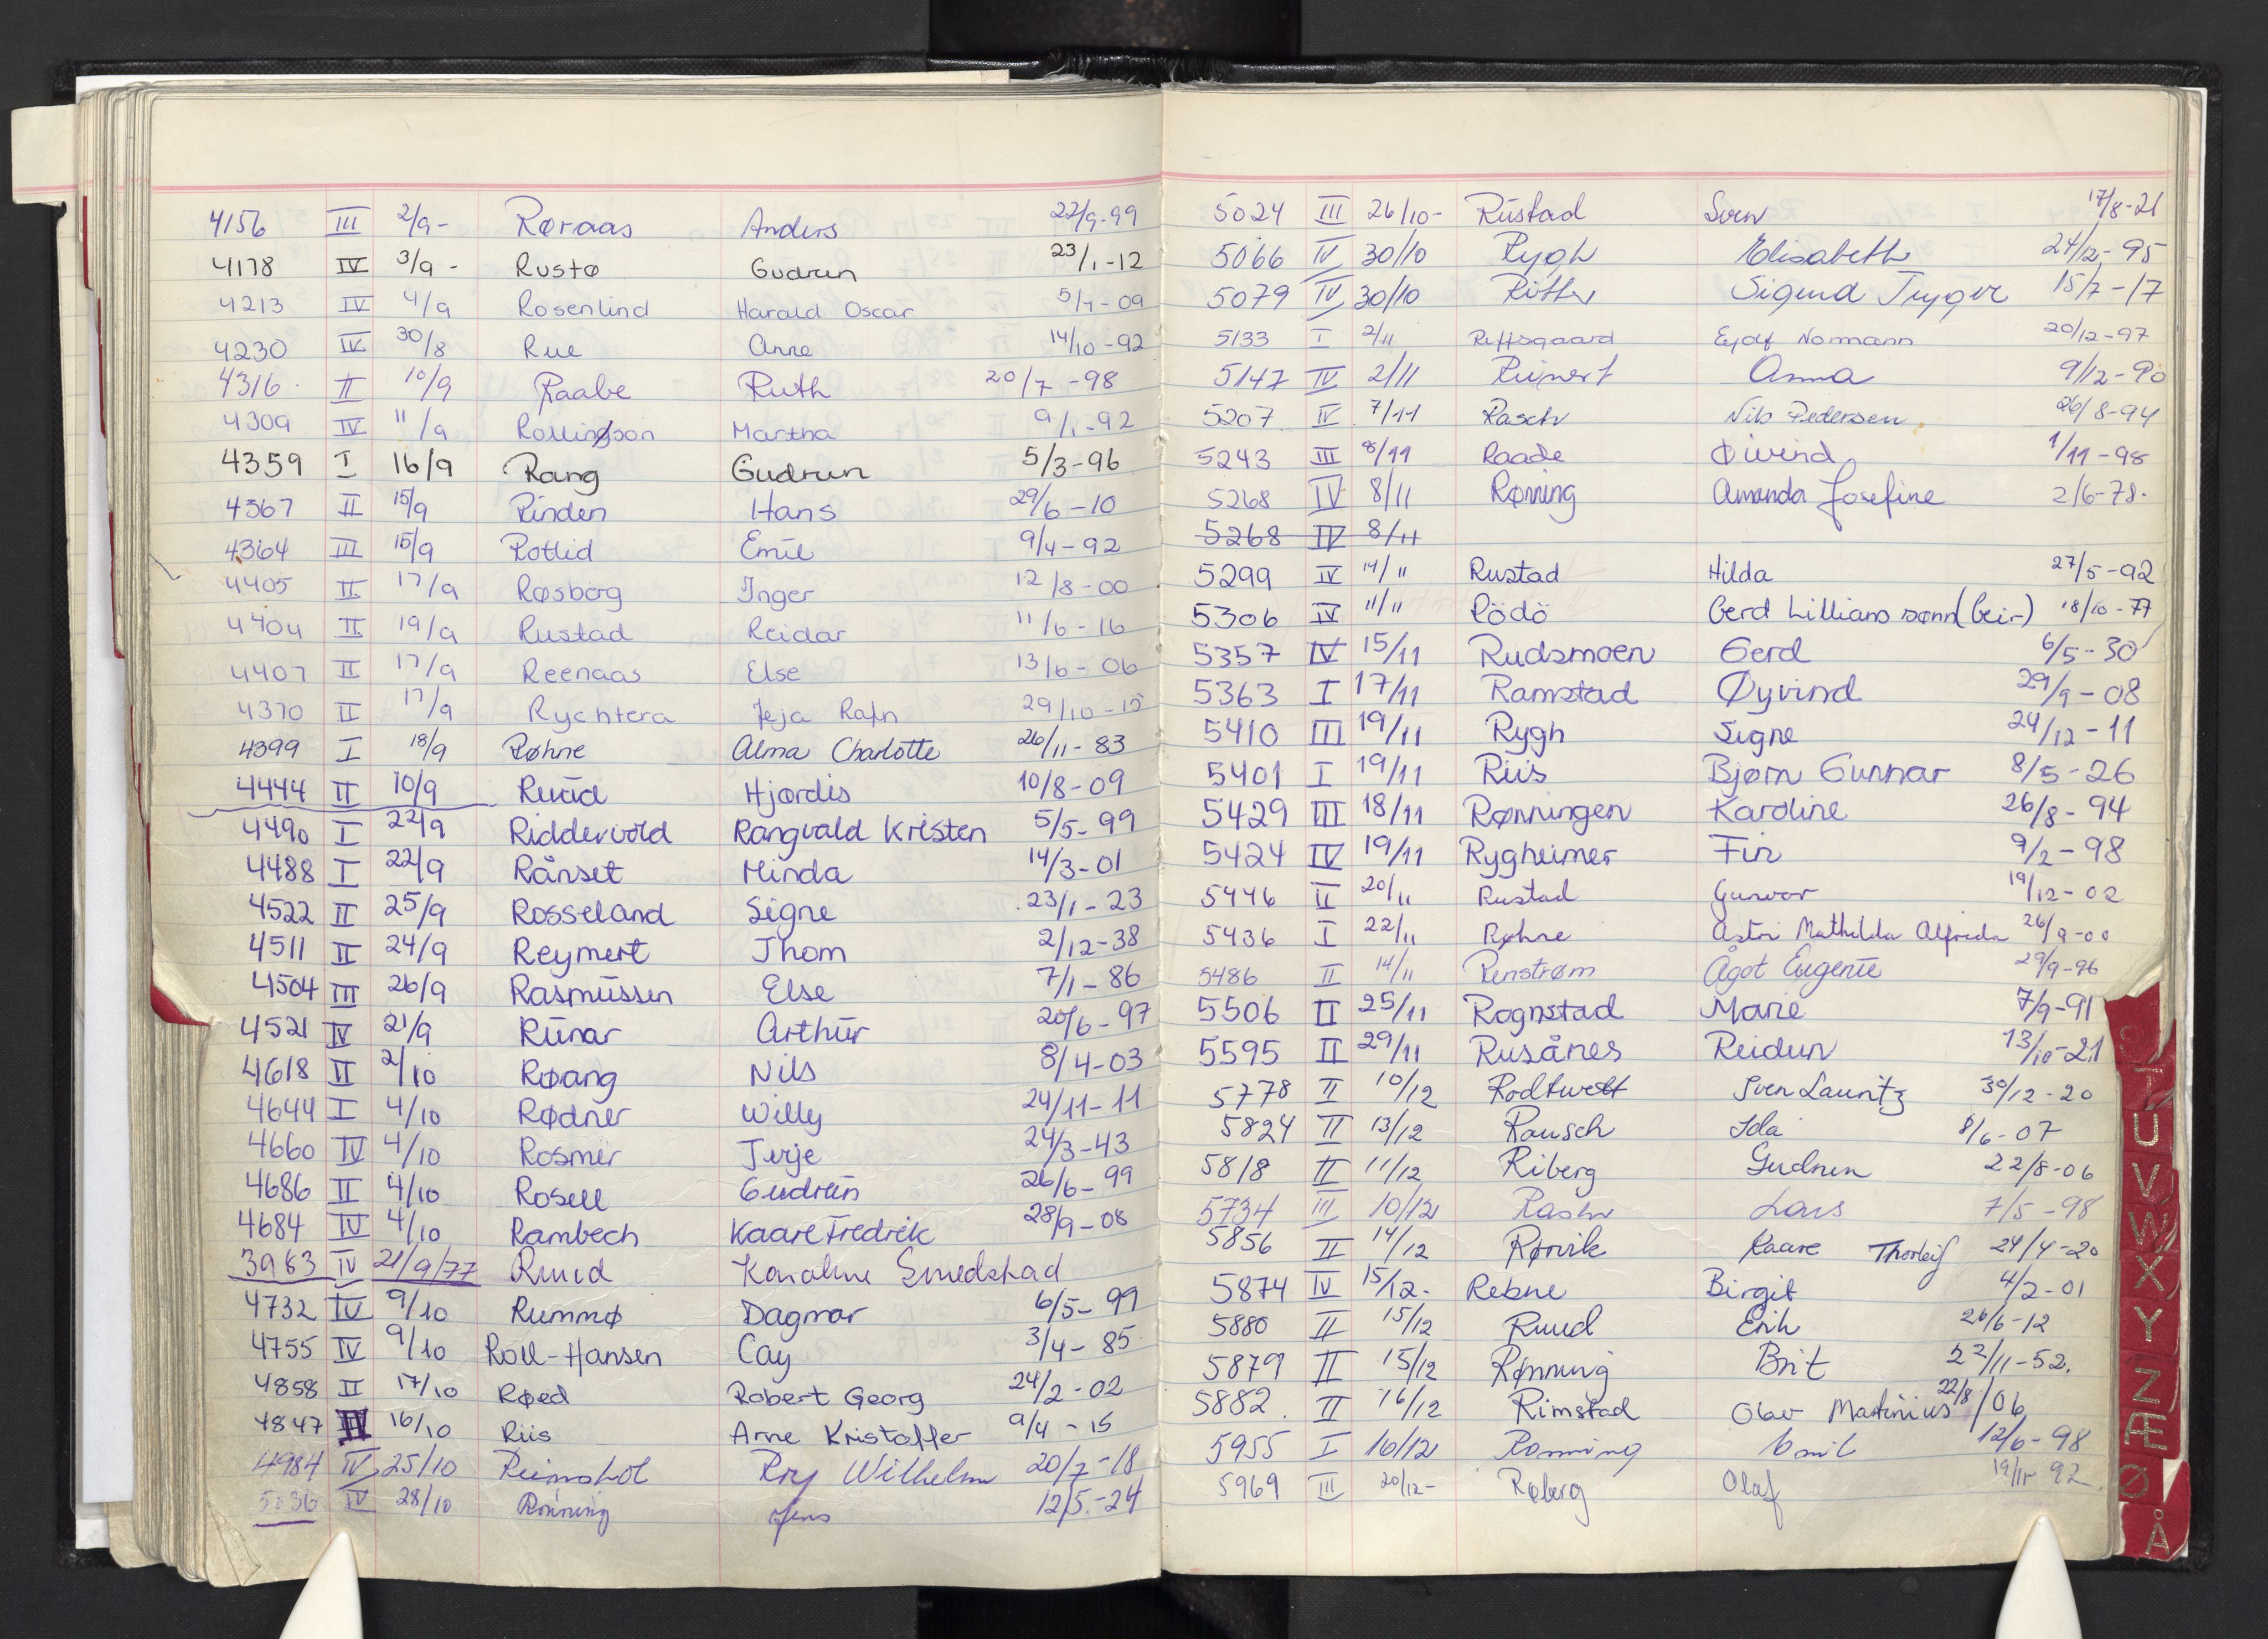 4156 III 2/9- Røraas Anders 22/9-99
4178 IV 3/9- Rustø Gudrun 23/1-12
4213 IV 4/9 Rosenlind Harald Oscar 5/7-09
4230 IV 30/8 Rue Anne 14/10-92
4316. II 10/9 Raabe Ruth 20/7-98
4309 IV 11/9 Rollingson Martha 9/1-92
4359 I 16/9 Rang Gudrun 5/3-96
4367 II 15/9 Rinden Hans 29/6-10
4364 III 15/9 Rotlid Emil 9/4-92
4405 II 17/9 Røsberg Inger 12/8-00
4404 II 19/9 Rustad Reidar 11/6-16
4407 II 17/9 Reenaas Else 13/6-06
4370 II 17/9 Rychtera Jeja Rafn 29/10-15
4399 I 18/9 Røhne Alma Charlotte 26/11-83
4444 II 10/9 Ruud Hjørdis 10/8-09
4490 I 22/9 Riddervold Rangvald Kristen 5/5-99
4488 I 22/9 Rånset Minda 14/3-01
4522 II 25/9 Rosseland Signe 23/1-23
4511 II 24/9 Reymert Thom 2/12-38
4504 III 26/9 Rasmussen Else 7/1-86
4521 IV 21/9 Runar Arthur 20/6-97
4618 II 2/10 Røang Nils 8/4-03
4644 I 4/10 Rødner Willy 24/11-11
4660 IV 4/10 Rosmer Terje 24/3-43
4686 II 4/10 Rosell Gudrun 26/6-99
4684 IV 4/10 Rambech Kaare Fredrik 28/9-08
3963 IV 21/9/77 Ruud Karoline Smedstad
4732 IV 9/10 Rummø Dagmar 6/5-99
4755 IV 9/10 Roll-Hansen Cay 3/4-85
4858 II 17/10 Røed Robert Georg 24/2-02
4847 IV 16/10 Riis Arne Kristoffer 9/4-15
4984 IV 25/10 Reimshol Roy Wilhelm 20/7-18
5036 IV 28/10 Rønning Jens 12/5.-24
5024 III 26/10- Rustad Sven 17/8-21
5066 IV 30/10 Rygh Elisabeth 24/12-95
5079 IV 30/10 Ritter Sigurd Trygve 15/7-17
5133 I 2/11 Reffsgaard Eyolf Normann 20/12-97
5147 IV 2/11 Reinert Anna 9/12-90
5207 IV 7/11 Rasch Nils Pedersen 26/8-94
5243 III 8/11 Raade Øivind 1/11-98
5268 IV 8/11 Rønning Amanda Josefine 2/6-78.
5268 IV 8/11
5299 IV 14/11 Rustad Hilda 27/5-92
5306 IV 11/11 Rödö Gerd Lillians sønn (Geir) 18/10-77
5357 IV 15/11 Rudsmoen Gerd 6/5-30
5363 I 17/11 Ramstad Øyvind 29/9-08
5410 III 19/11 Rygh Signe 24/12-11
5401 I 19/11 Riis Bjørn Gunnar 8/5-26
5429 III 18/11 Rønningen Karoline 26/8-94
5424 IV 19/11 Rygheimer Finn 9/2-98
5446 II 20/11 Rustad Gunvor 19/12-02
5436 I 22/11 Røhne Astri Mathilda Alfrida 26/9-00
5486 II 14/11 Renstrøm Ågot Eugenie 29/9-96
5506 II 25/11 Rognstad Marie 7/9-91
5595 II 29/11 Rusånes Reidun 13/10-21
5778 II 10/12 Rodtwett Sven Lauritz 30/12-20
5824 II 13/12 Rausch Ida 8/6-07
5818 II 11/12 Riberg Gudrun 22/8-06
5734 III 10/12 Rasch Lars 7/5-98
5856 II 14/12 Rørvik Kaare Thorleif 24/4-20
5874 IV 15/12. Rebne Birgit 4/2-01
5880 II 15/12 Ruud Erik 26/6-12
5879 II 15/12 Rønning Brit 22/11-52.
5882 II 16/12 Rimstad Olav Martinius 22/8/06
5955 I 16/12 Rønning Emil 12/6-98
5969 III 20/12- Røberg Olaf 19/11-92
S
T
U
V
W
X
Y
Z
Æ
Ø
Å